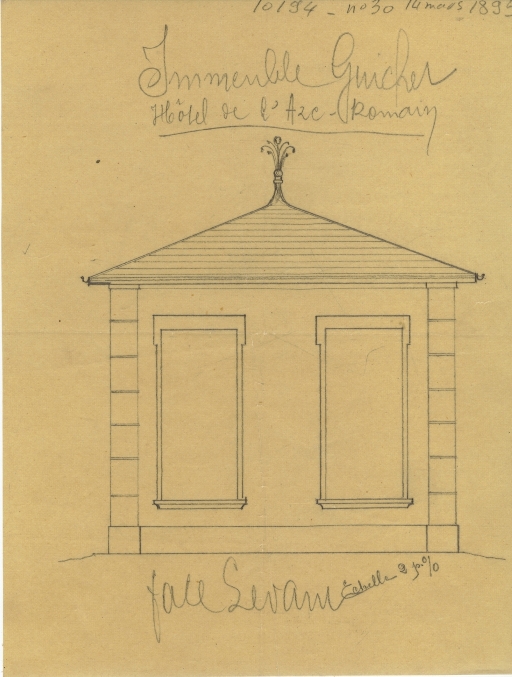 10194 - no 30 14 mars 1893
Immeuble Guichet
Hôtel de l'Arc-Romain
face Levant Echelle 2 p. %